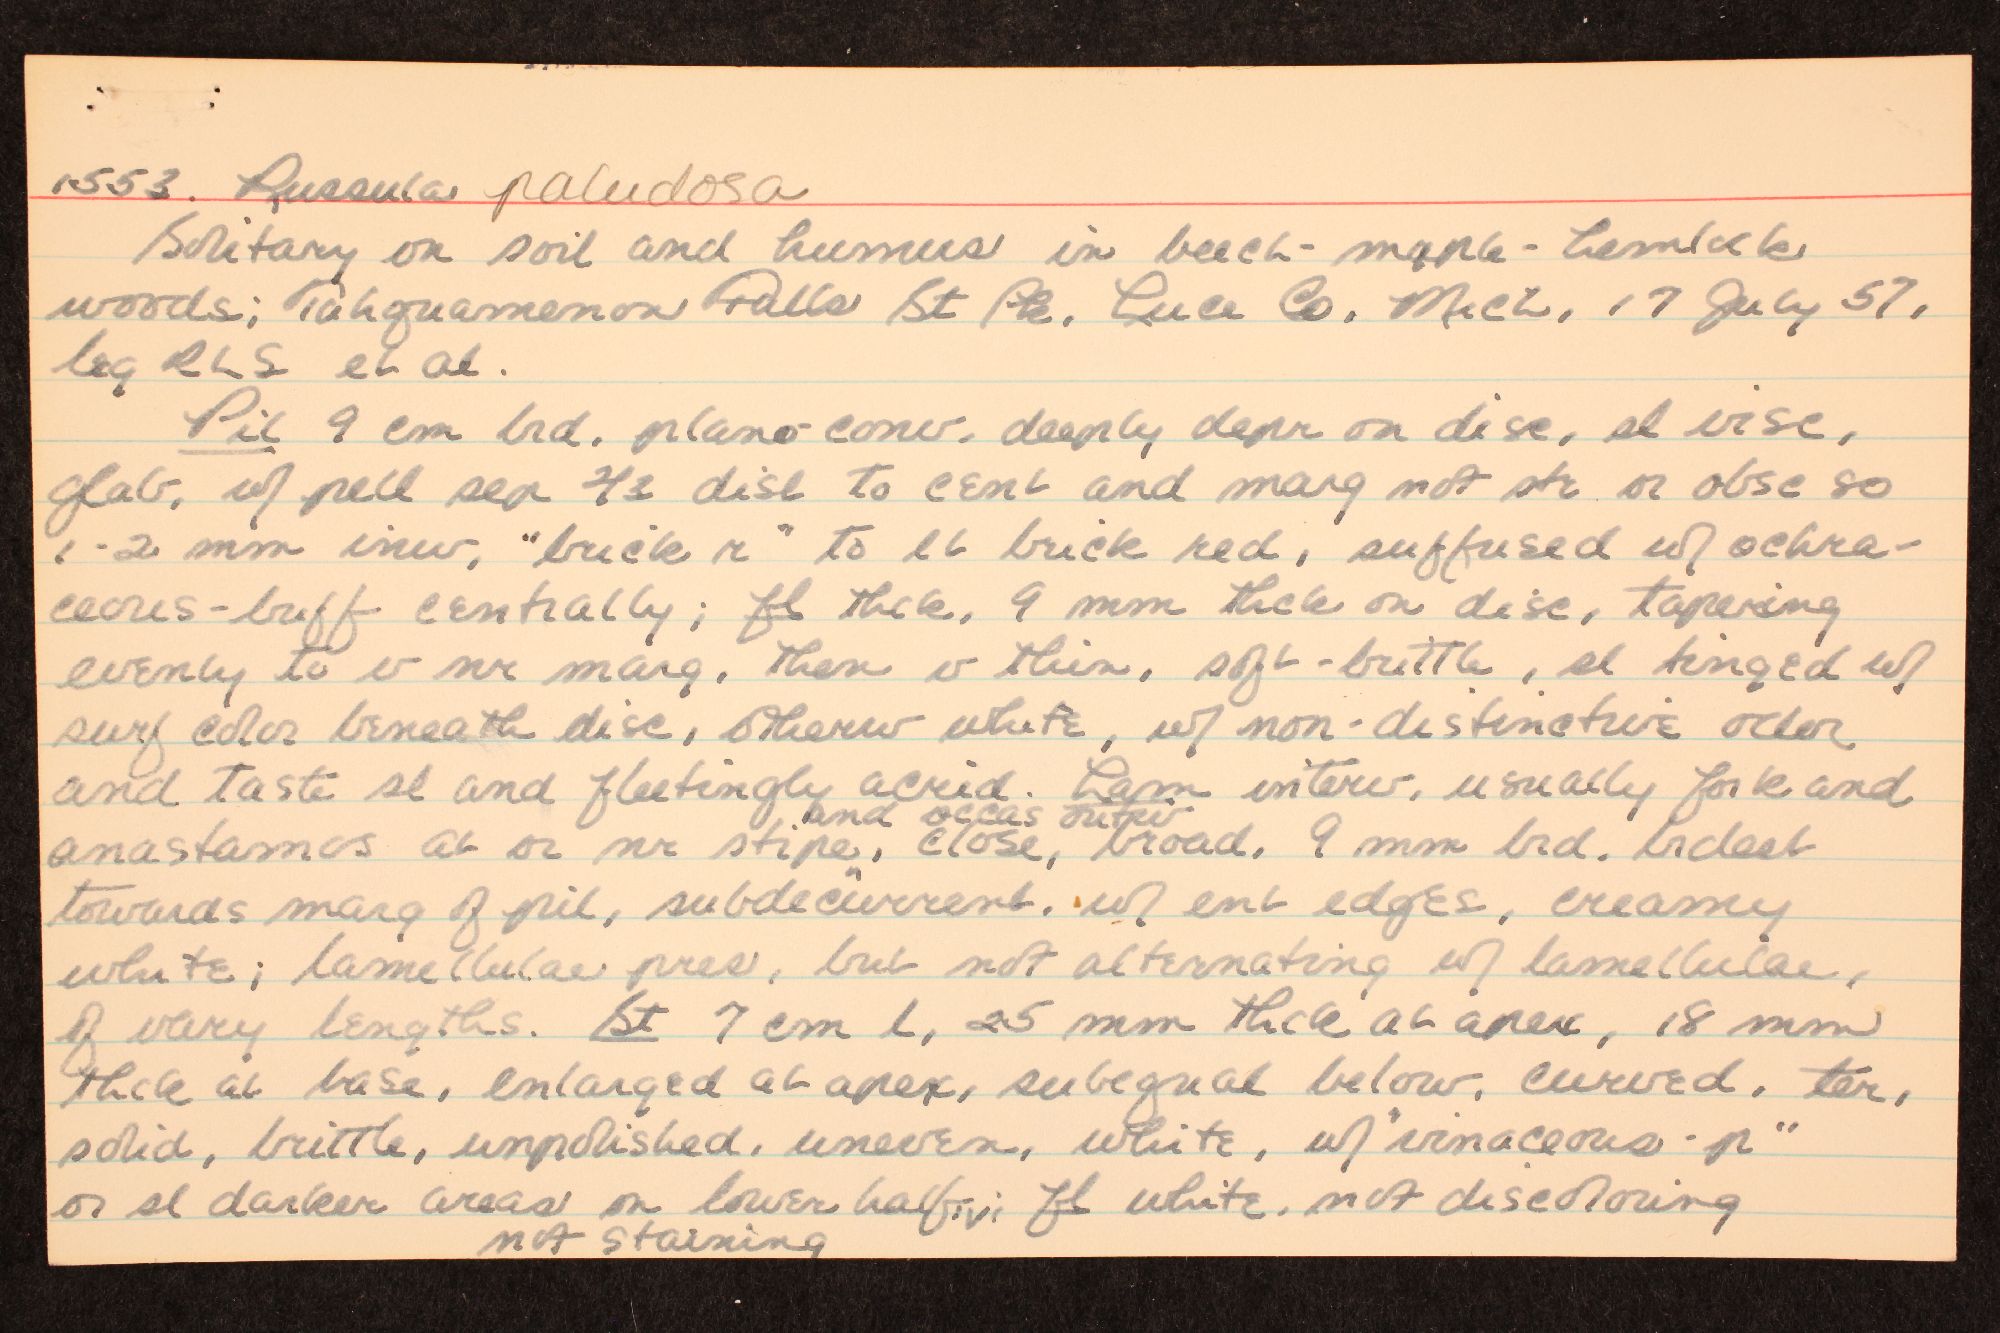 1553. Russula paludosa
Solitary on soil and humus in beech-maple-hemlock
woods; Tahquamenon Falls St Pk, Luce Co, Mich, 17 July 57,
leg RLS et al.
Pil 9 cm brd, plano-conv, deeply depr on disc, sl visc,
glab, w/ pell sep 2/3 dist to cent and marg not str or obsc so
1-2 mm inw, "brick r" to lt brick red, suffused w/ ochra-
ceous-buff centrally; fl thck, 9 mm thck on disc, tapering
evenly to v nr marg, then v thin, soft-brittle, sl tinged w/
surf color beneath disc, otherw white, w/ non-distinctive odor
and taste sl and fleetingly acrid. Lam interv, usually fork and
and occas outw
anastamos at or nr stipe, close, broad, 9 mm brd, brdest
towards marg of pil, subdecurrent, w/ ent edges, creamy
white; lamellulae pres, but not alternating w/ lamellulae,
of vary lengths. St 7 cm l, 25 mm thck at apex, 18 mm
thck at base, enlarged at apex, subequal below, curved, ter,
solid, brittle, unpolished, uneven, white, w/ "vinaceous-p"
or sl darker areas on lower half; fl white, not discoloring
not staining